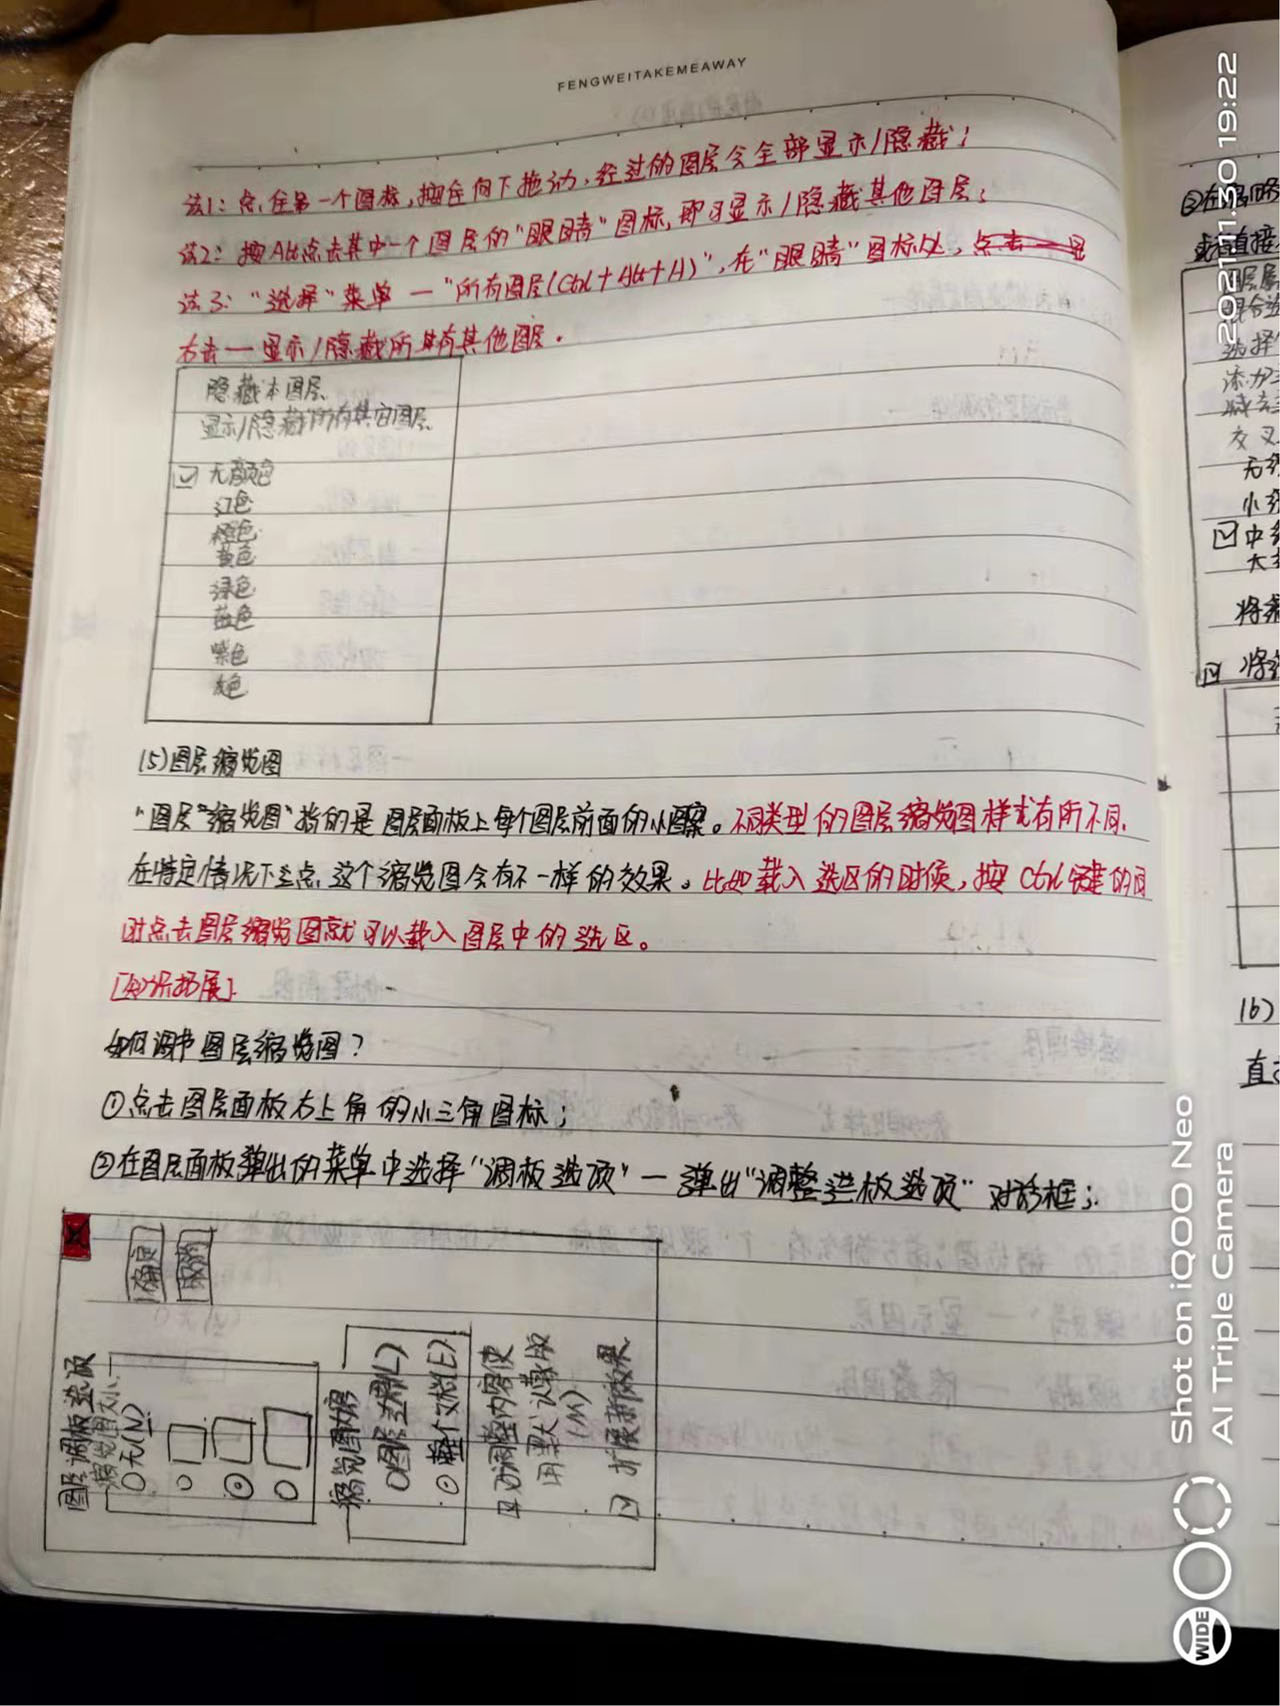 FENGWEITAKEMEAWAY
法1：点住第一个图标，按住向下拖动，经过的图层会全部显示/隐藏；
法2：按Alt点击其中一个图层的“眼睛”图标，即可显示/隐藏其他图层；
法3：“选择”菜单—“所有图层(Ctrl+Alt+A)”，在“眼睛”图标处，
右击—显示/隐藏所有其他图层。
隐藏本图层
显示/隐藏所有其它图层
无颜色
红色
橙色
黄色
绿色
蓝色
紫色
灰色
(5)图层缩览图
“图层”缩览图“指的是图层面板上每个图层前面的小图案。不同类型的图层缩览图样式有所不同.
在特定情况下点这个缩览图会有不一样的效果。比如载入选区的时候，按Ctrl键的同
时点击图层缩览图就可以载入图层中的选区。
[知识拓展]:
如何调节图层缩览图？
①点击图层面板右上角的小三角图标；
②在图层面板弹出的菜单中选择“调板选项”—弹出“调整选板选项”对话框；
图层调板选项
缩览图大小
无(N)
确定
取消
缩览图内容
图层边界(L)
整个文档(E)
对调整内容使
用默认蒙版
(M)
扩展新效果
③在图
或者直接
选择
添加
减去
交叉
无
小
中
大
将
将
(6)
直
2021.11.30 19:22
Shot on iQOO Neo
AI Triple Camera
WIDE